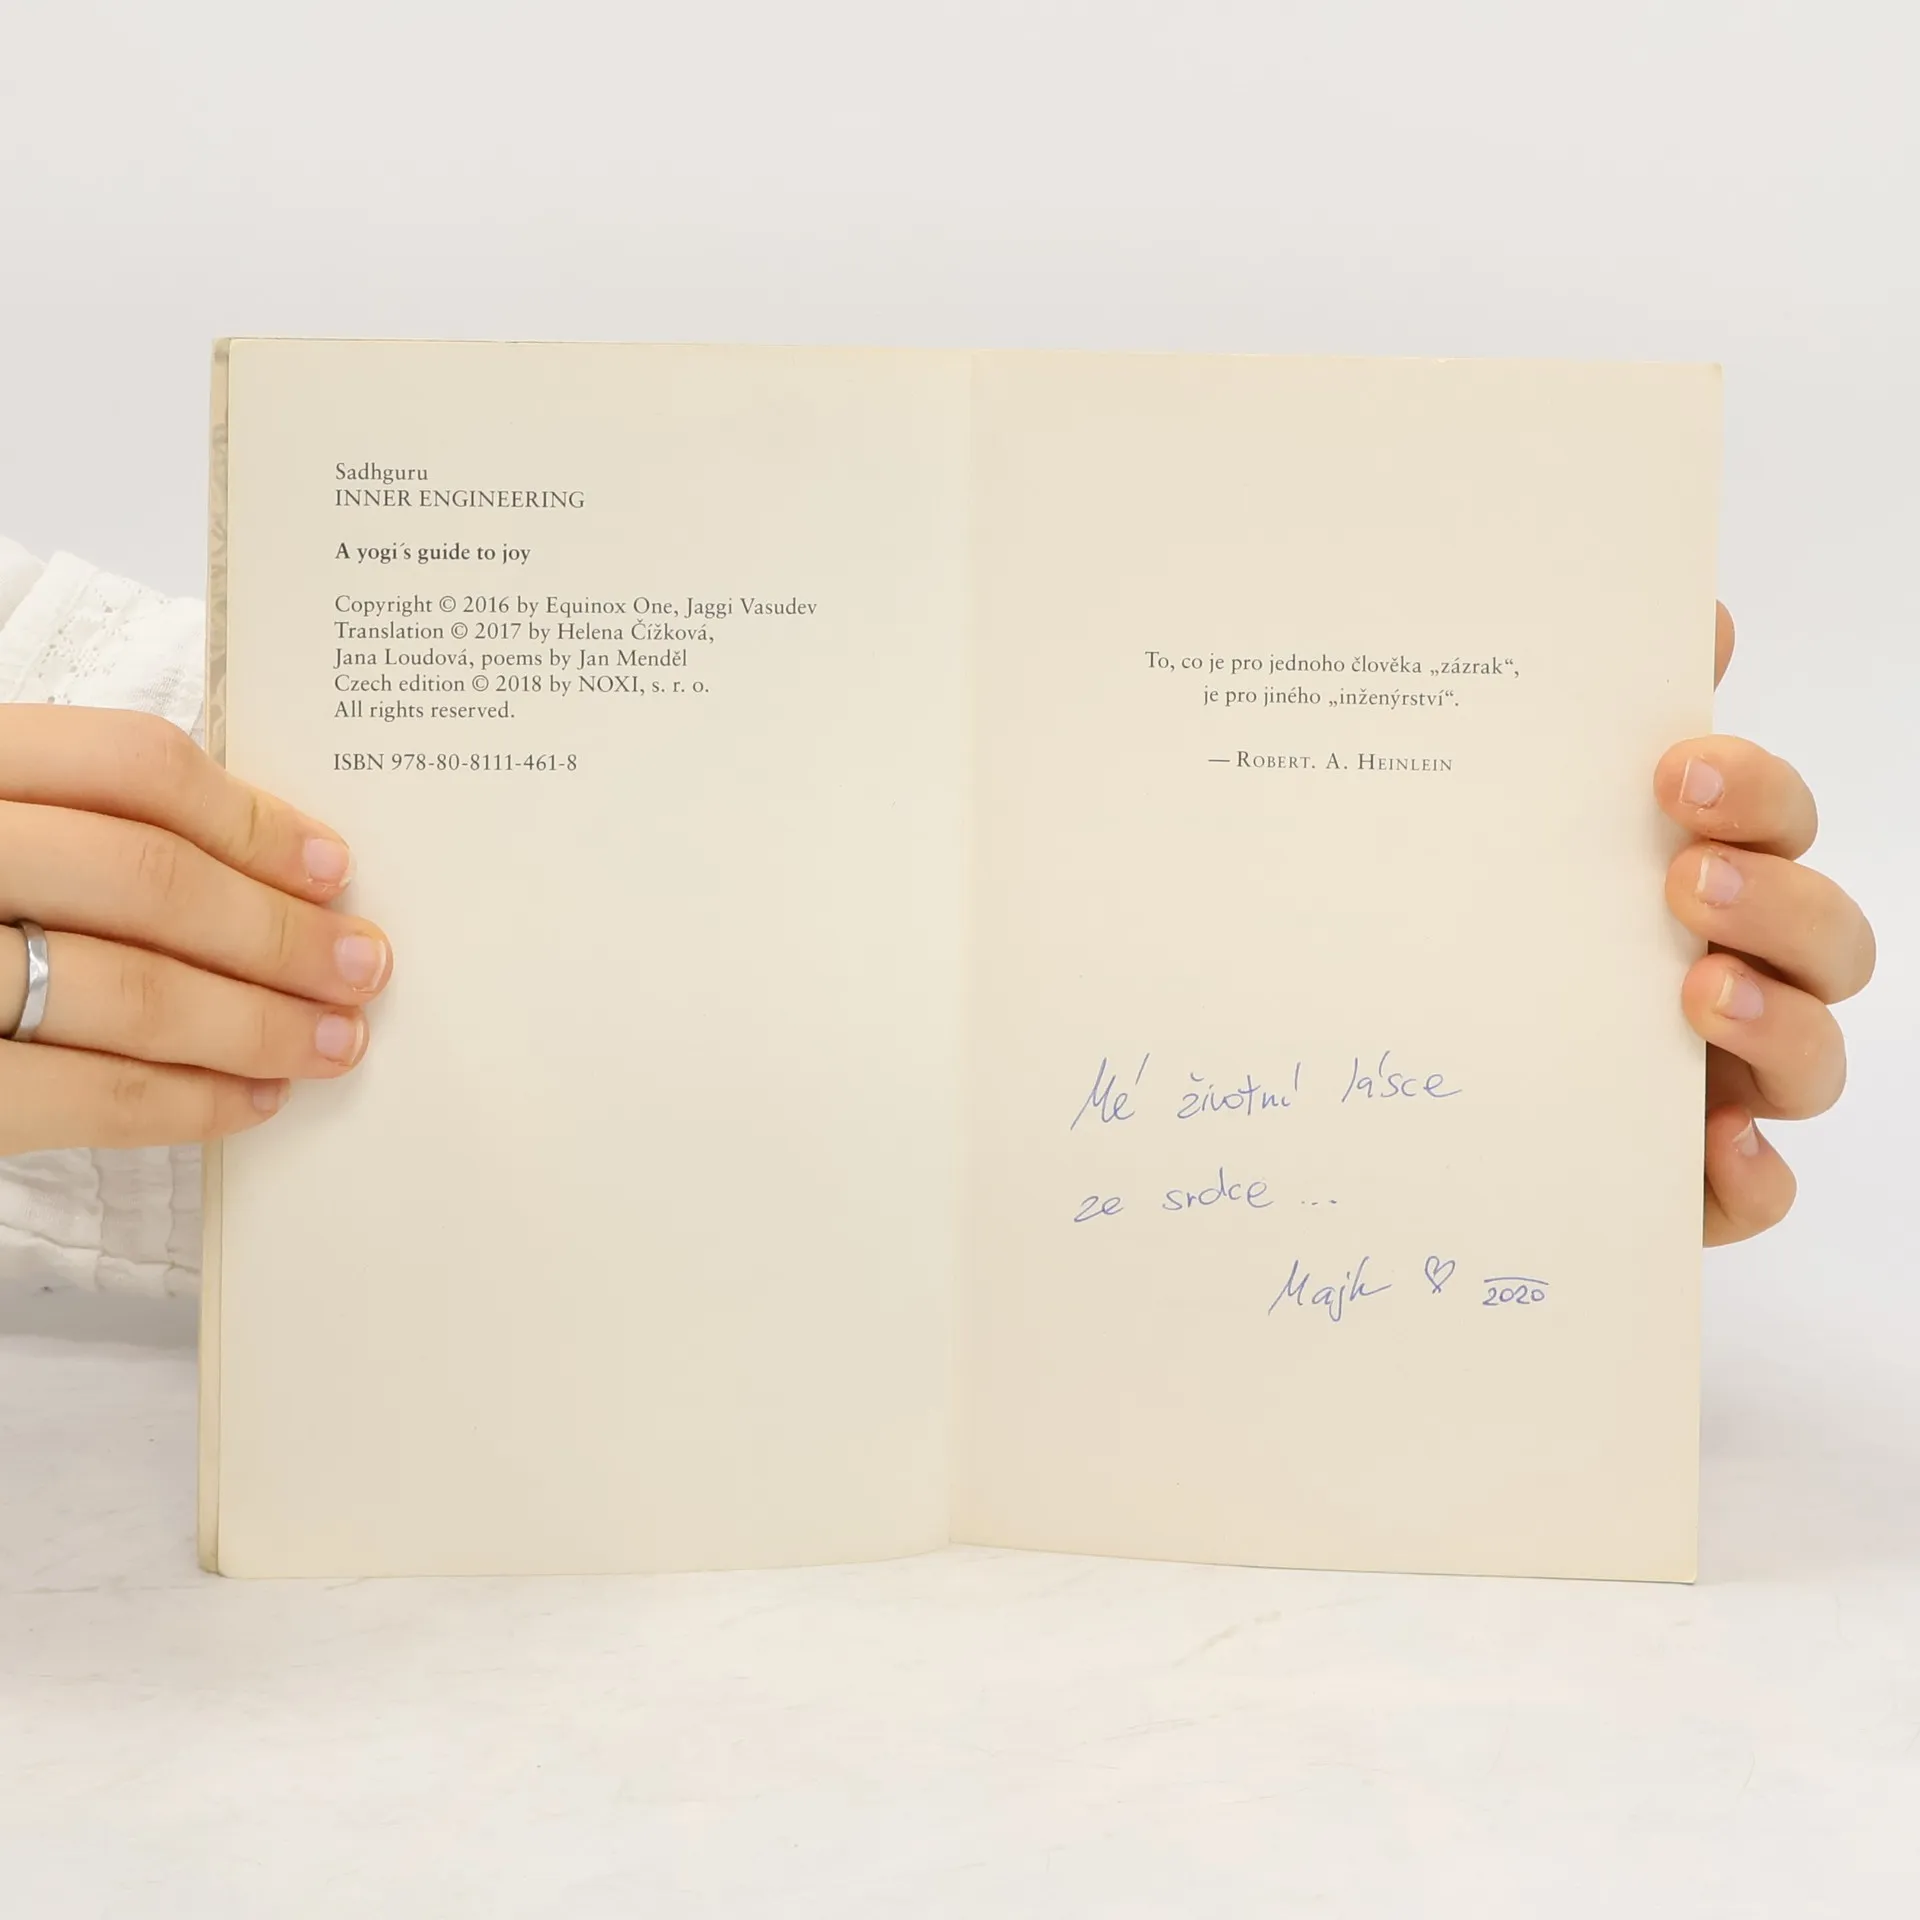 Sadhguru
INNER ENGINEERING
A yogi´s guide to joy
Copyright © 2016 by Equinox One, Jaggi Vasudev
Translation © 2017 by Helena Čížková,
Jana Loudová, poems by Jan Menděl
Czech edition © 2018 by NOXI, s. r. o.
All rights reserved.
ISBN 978-80-8111-461-8
To, co je pro jednoho člověka „zázrak“,
je pro jiného „inženýrství“.
— ROBERT. A. HEINLEIN
Mé životní lásce
ze srdce ...
Majk ♡ 2020